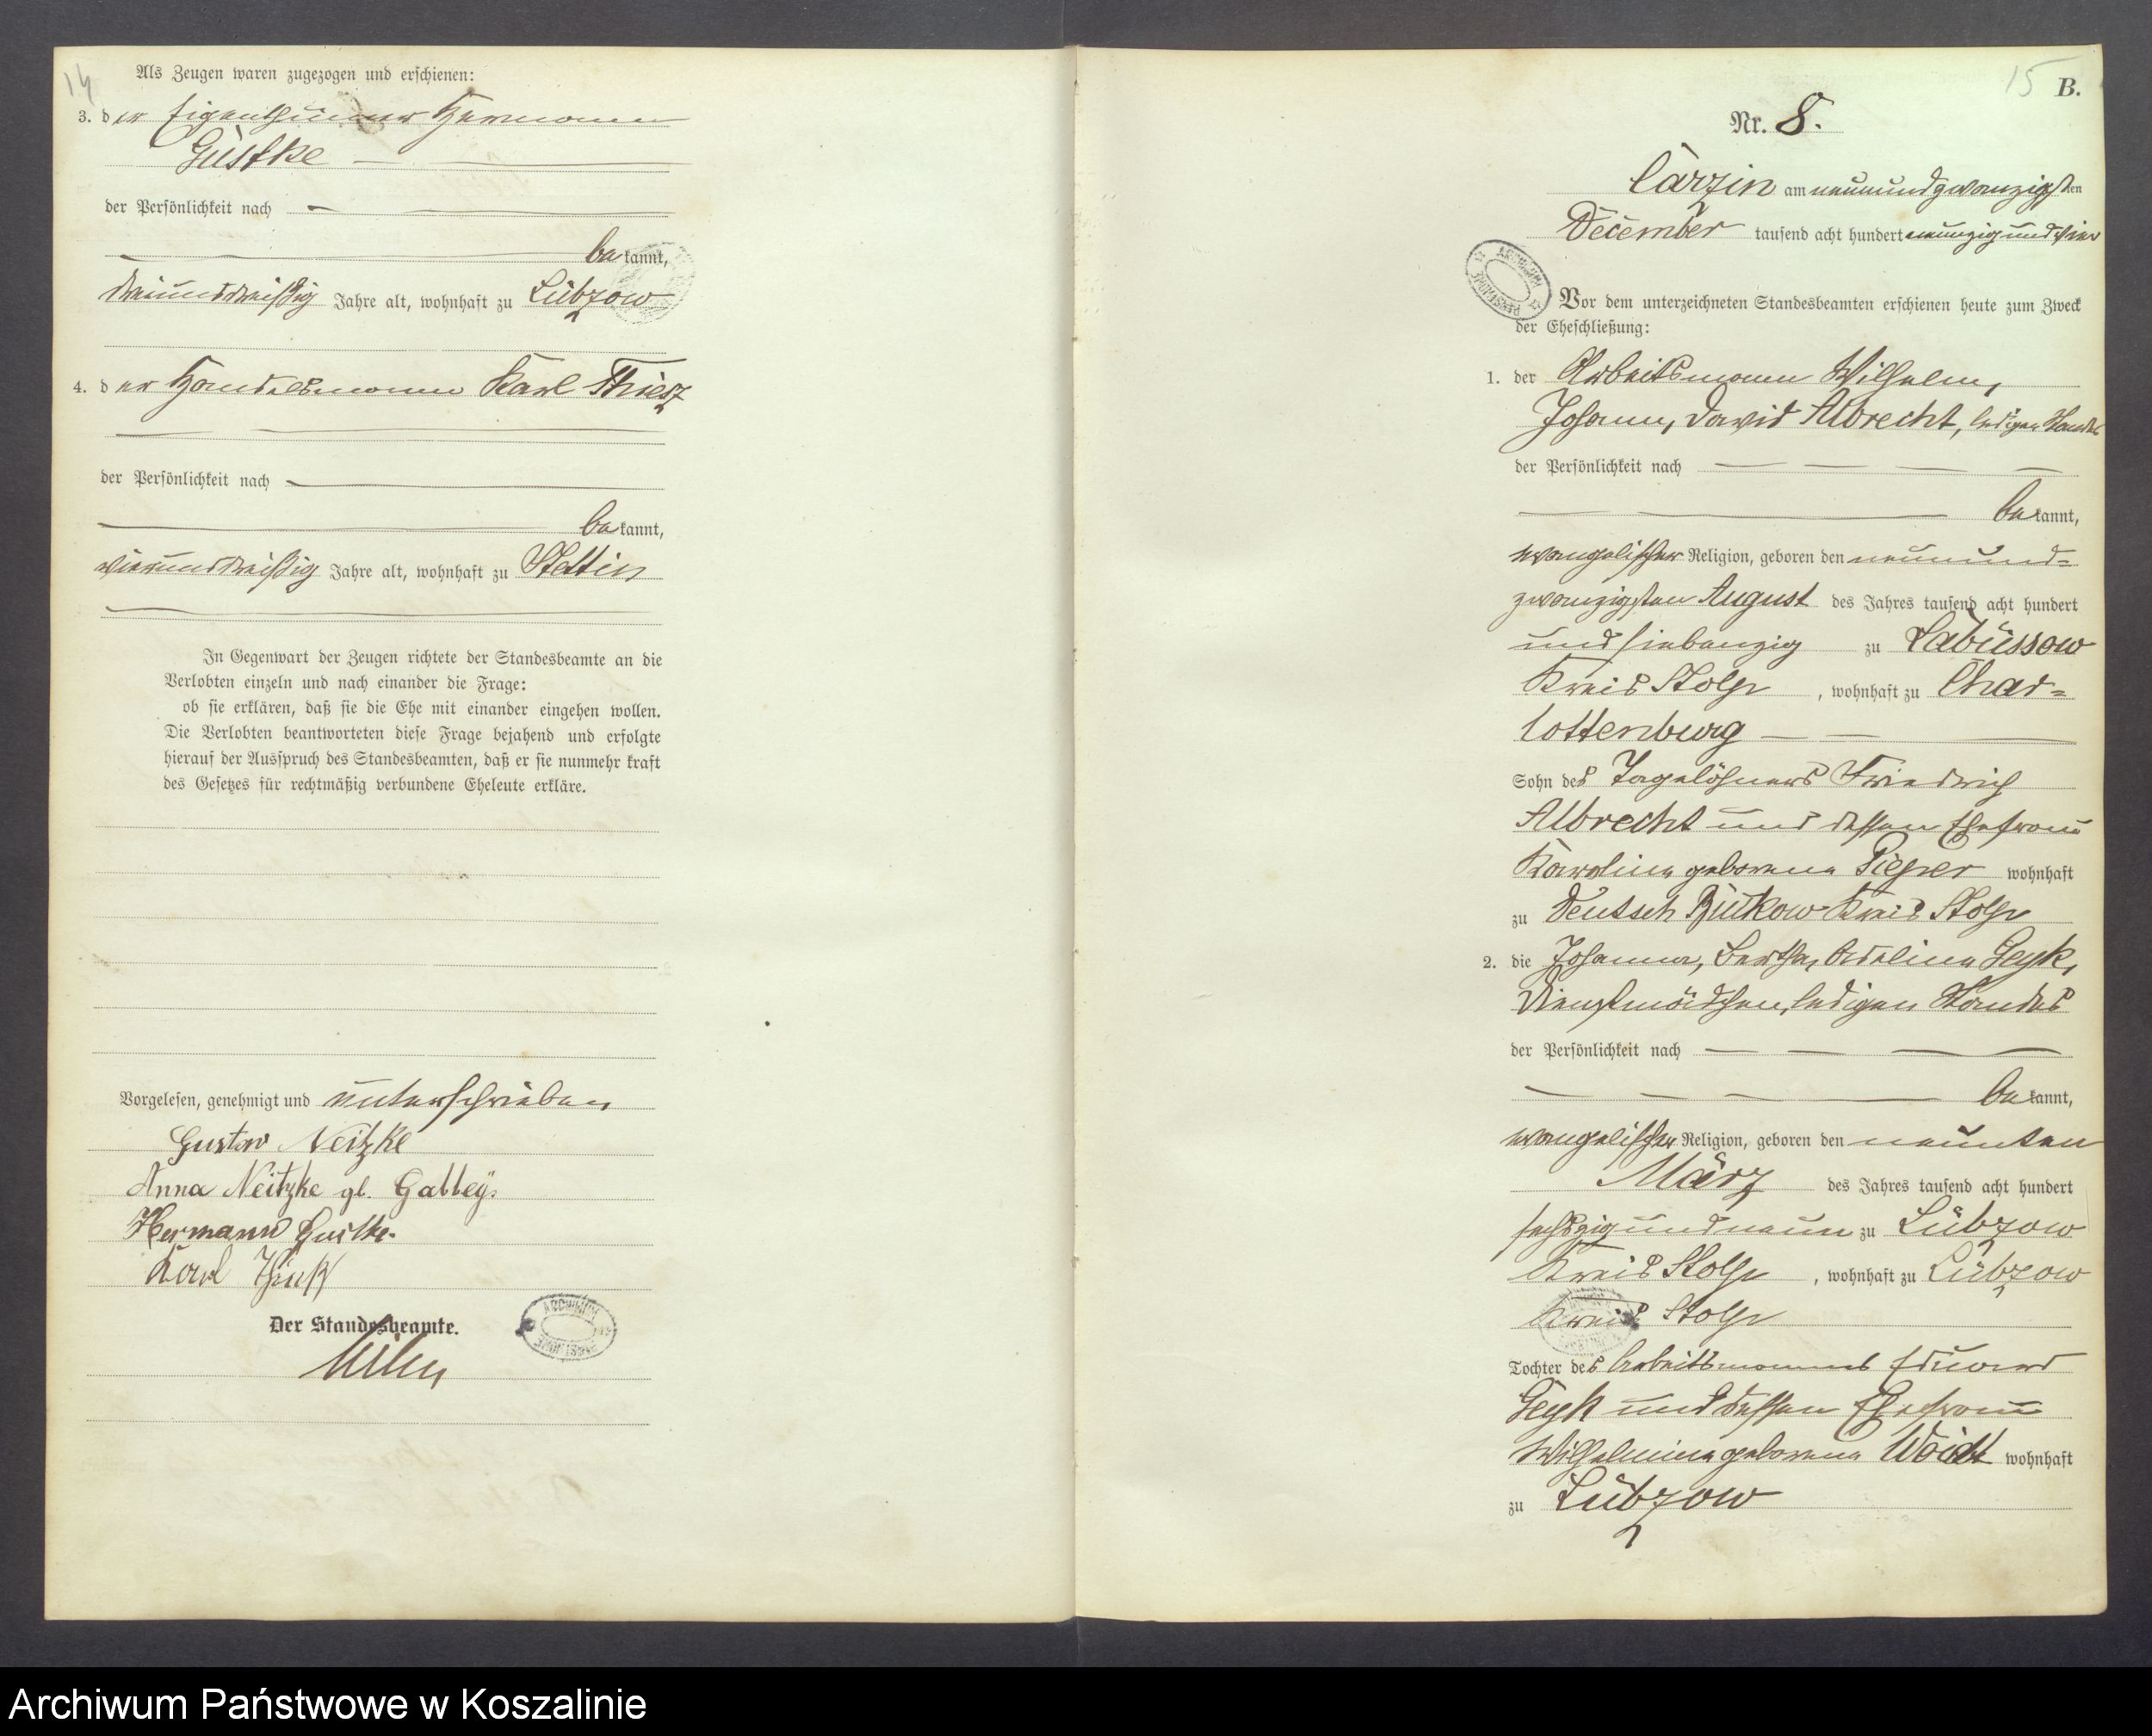 14
Als Zeugen waren zugezogen und erschienen:
3. der Eigenthümer Hermann
Güstke
der Persönlichkeit nach
bekannt,
dreiunddreißig Jahre alt, wohnhaft zu Lübzow
4. der Handelsmann Karl Thiesz
der Persönlichkeit nach
bekannt,
vierunddreißig Jahre alt, wohnhaft zu Stettin
In Gegenwart der Zeugen richtete der Standesbeamte an die
Verlobten einzeln und nach einander die Frage:
ob sie erklären, daß sie die Ehe mit einander eingehen wollen.
Die Verlobten beantworteten diese Frage bejahend und erfolgte
hierauf der Ausspruch des Standesbeamten, daß er sie nunmehr kraft
des Gesetzes für rechtmäßig verbundene Eheleute erkläre.
Vorgelesen, genehmigt und unterschrieben
Gustav Neitzke
Anna Neitzke gb. Gabbey.
Hermann Gustke.
Karl
Der Standesbeamte.
ARCHIWUM PAŃSTWOWE
15
B.
Nr. 8.
Carzin am neunundzwanzigsten
December tausend acht hundert neunzig und vier
ARCHIWUM PAŃSTWOWE
Vor dem unterzeichneten Standesbeamten erschienen heute zum Zweck
der Eheschließung:
1. der Arbeitsmann Wilhelm,
Johann, David Albrecht, ledigen Standes
der Persönlichkeit nach
bekannt,
evangelischer Religion, geboren den neunund=
zwanzigsten August des Jahres tausend acht hundert
und siebenzig zu Labüssow
Kreis Stolp, wohnhaft zu Char=
lottenburg
Sohn des Tagelöhners Friedrich
Albrecht und dessen Ehefrau
Karoline geborene Pieper wohnhaft
zu Deutsch Buckow Kreis Stolp
2. die Johanna, Bertha, Adeline Geyk,
Dienstmädchen, ledigen Standes
der Persönlichkeit nach
bekannt,
evangelischer Religion, geboren den neunten
März des Jahres tausend acht hundert
sechszig und neun zu Lübzow
Kreis Stolp, wohnhaft zu Lübzow
Kreis Stolp
Tochter des Arbeitsmannes Eduard
Geyk und dessen Ehefrau
Wilhelmine geborene Woidt wohnhaft
zu Lübzow
Archiwum Państwowe w Koszalinie